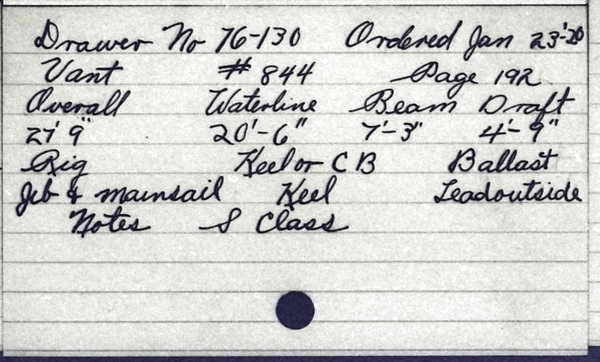 Drawer No 76-130 Ordered Jan 23-'20
Vant # 844 Page 192
Overall Waterline Beam Draft
27' 9" 20'-6" 7'-3" 4'-9"
Rig Keel or C B Ballast
Jib & mainsail Keel Lead outside
Notes S Class